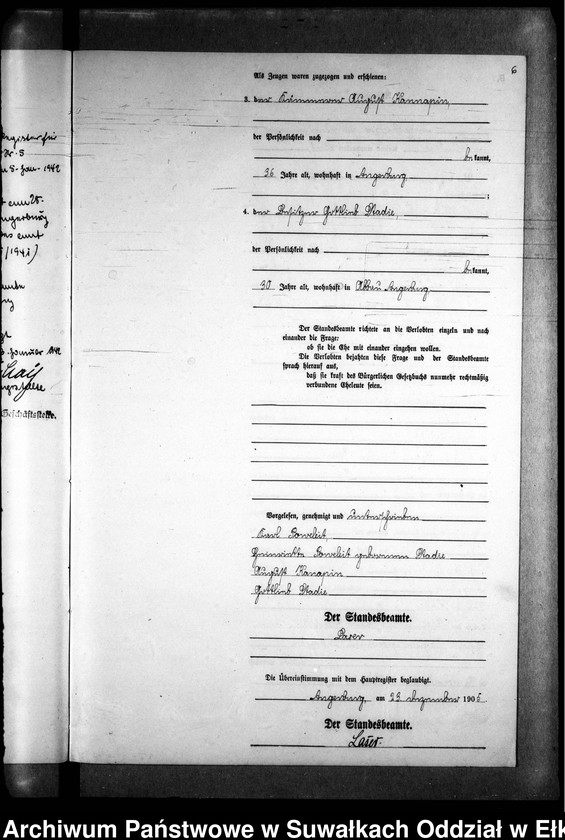 6
Als Zeugen waren zugezogen und erschienen:
3. der Kämmerer August Kannapin,
der Persönlichkeit nach
be kannt,
36 Jahre alt, wohnhaft in Angerburg
;
4. der Besitzer Gottlieb Stadie,
der Persönlichkeit nach
be kannt,
30 Jahre alt, wohnhaft in Abbau Angerburg
Der Standesbeamte richtete an die Verlobten einzeln und nach
einander die Frage:
ob sie die Ehe mit einander eingehen wollen.
Die Verlobten bejahten diese Frage und der Standesbeamte
sprach hierauf aus,
daß sie kraft des Bürgerlichen Gesetzbuchs nunmehr rechtmäßig
verbundene Eheleute seien.
Vorgelesen, genehmigt und unterschrieben
Karl
Henriette geborene Stadie
August Kanapin
Gottlieb Stadie
Der Standesbeamte.
Laser
Die Übereinstimmung mit dem Hauptregister beglaubigt.
Angerburg, am 29 Dezember 1905
Der Standesbeamte.
Laser.
egister für
Nr. 5
5. Jan. 1942
ngerburg
/1941)
Januar 1942
Geschäftsstelle.
Archiwum Państwowe w Suwałkach Oddział w Ełk